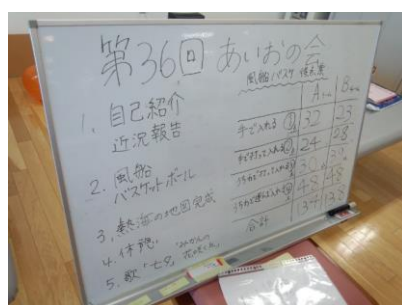 第36回 あいおの会
1. 自己紹介
近況報告
2. 風船
バスケットボール
3. 熱海の地図完成
4. 体操
5. 歌「七夕」「みかんの花咲く丘」
風船バスケ 得点表
A B
手で入れる ① 32 23
24 28
30 39
48 48
合計 134 138